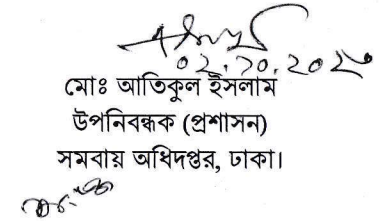 ০২.১০.২০২৫
মোঃ আতিকুল ইসলাম
উপনিবন্ধক (প্রশাসন)
সমবায় অধিদপ্তর, ঢাকা।